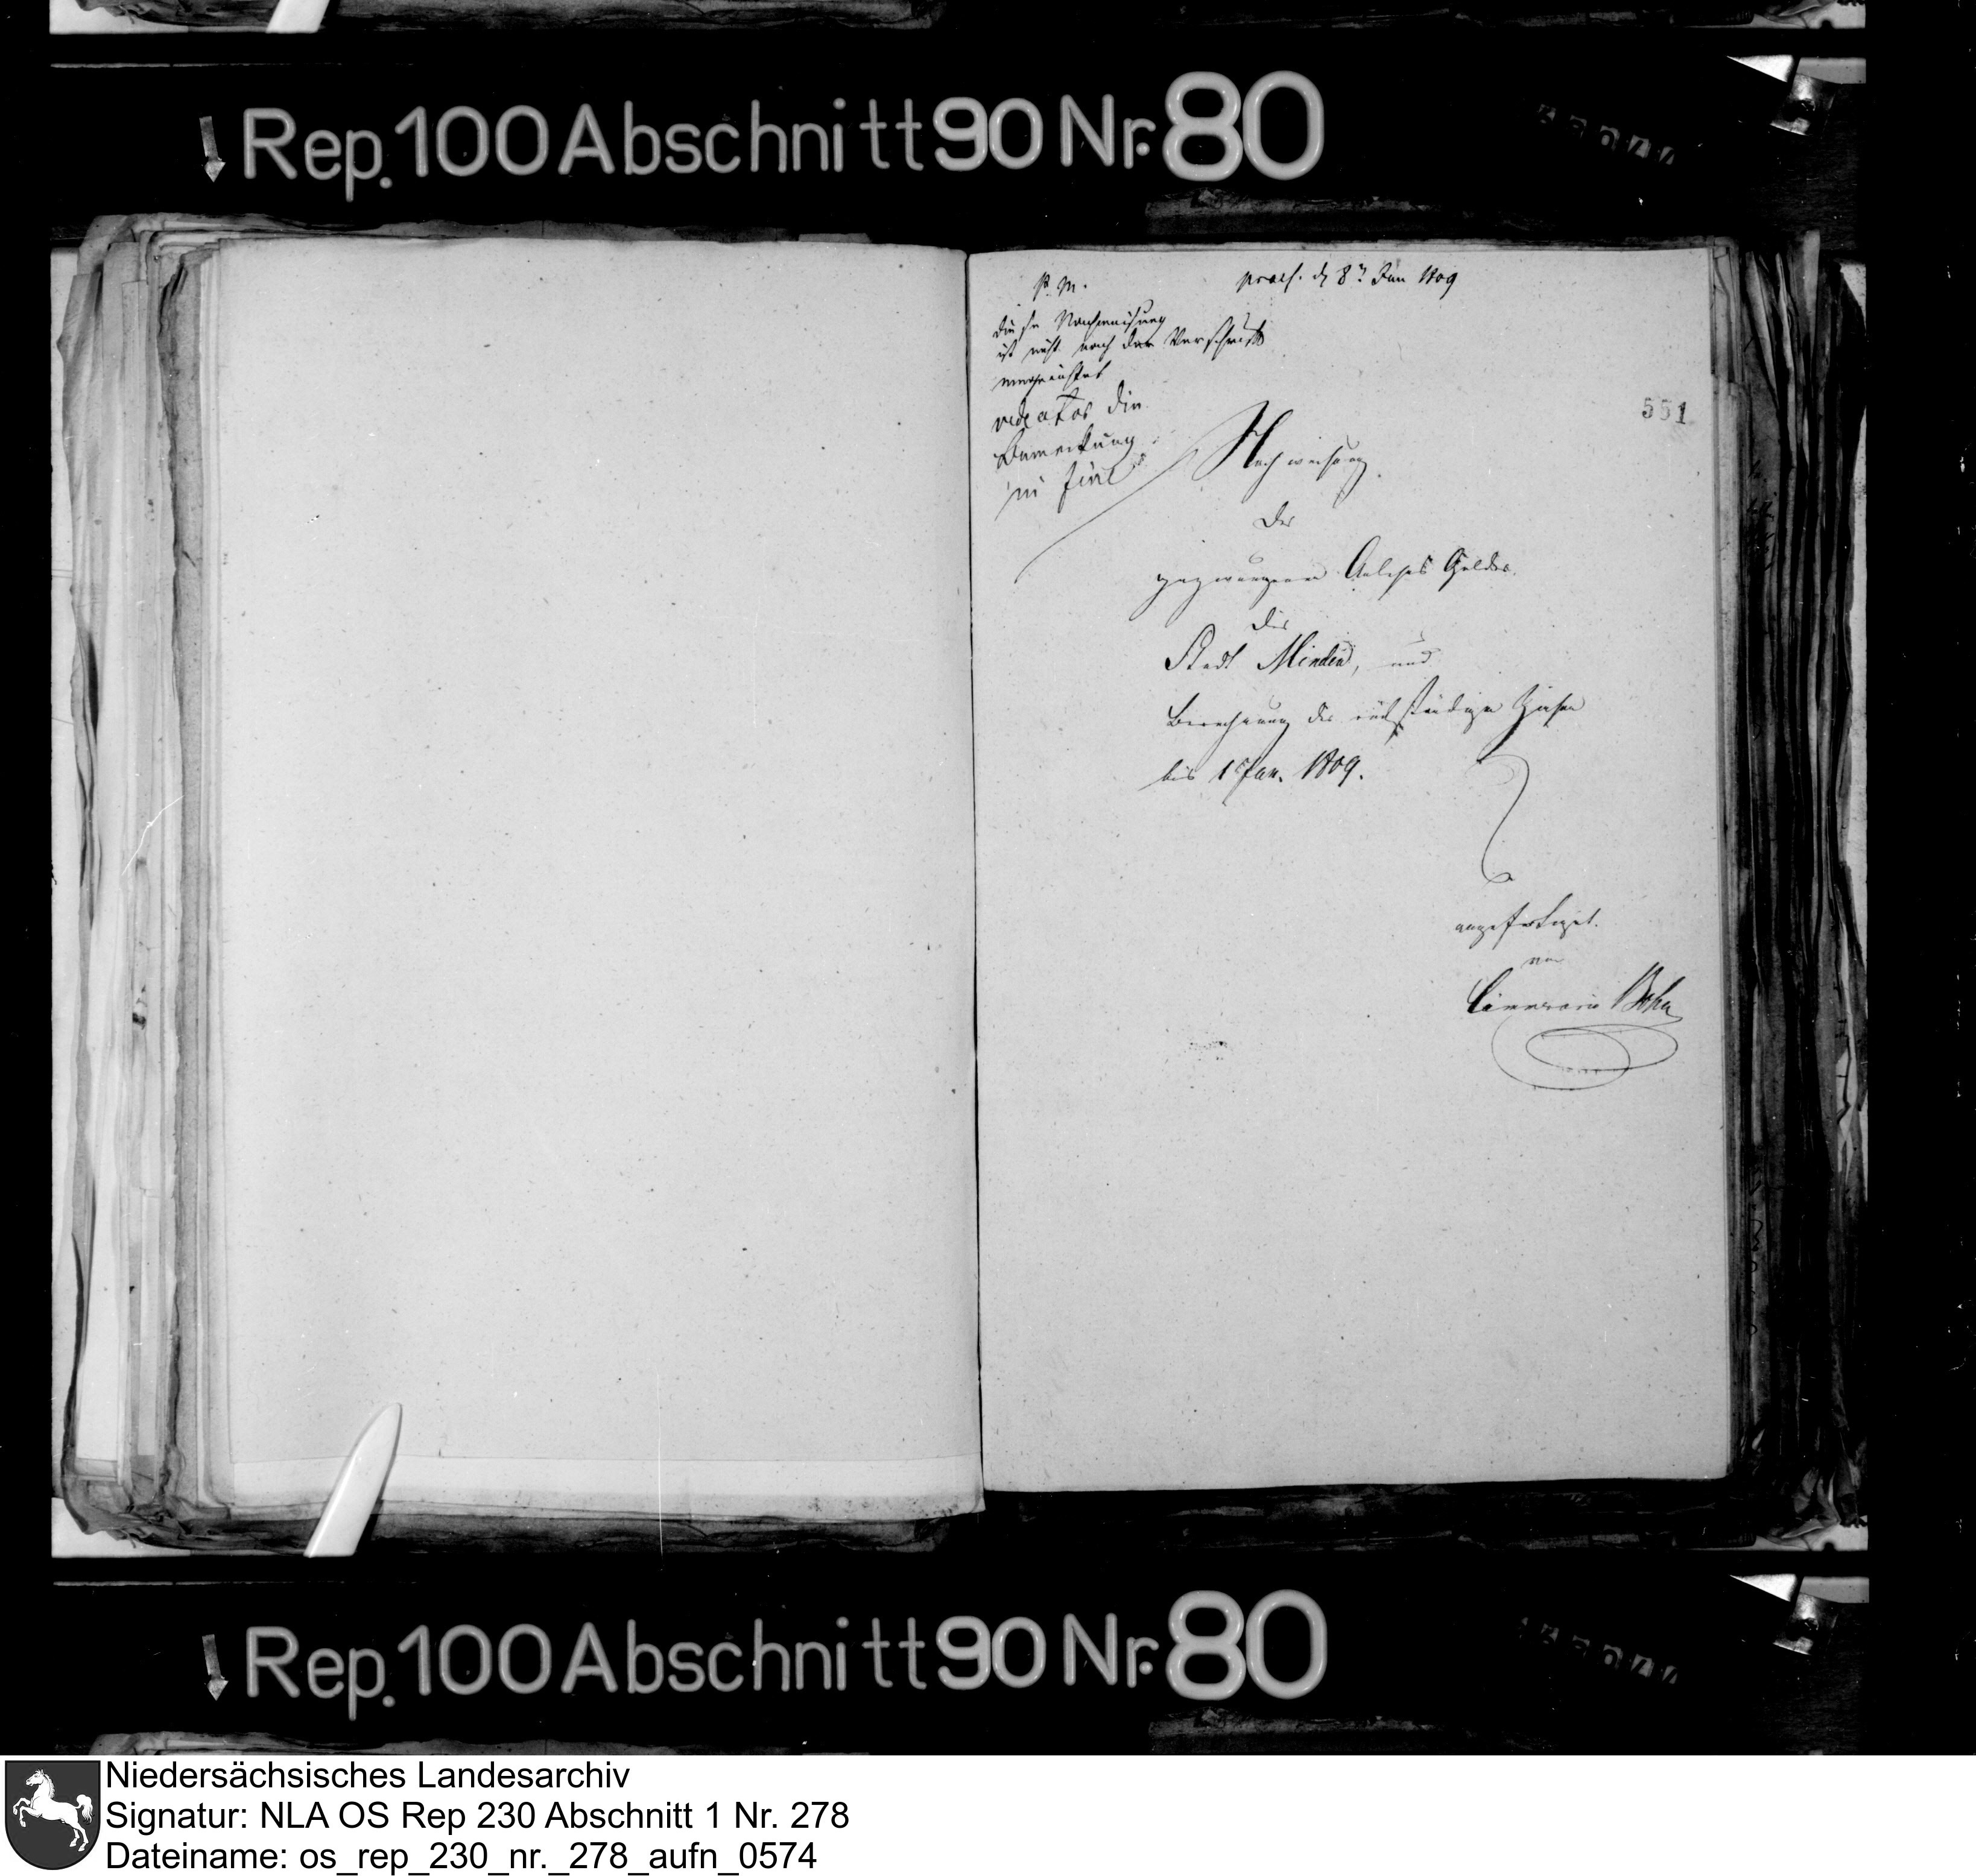 Rep. 100 Abschnitt 90 Nr. 80
P. M.
praes. d 8t Jan 1809
diese Nachweisung
ist nicht nach der Vorschrift
eingerichtet
die
Bemerkung
in fine
551
Nachweisung
der
gezwungenen Anleihe Gelder
der
Stadt Minden, und
Berechnung der rückständigen Zinsen
bis 1 Jan. 1809.
angefertiget.
von
Cämmerarius
Rep. 100 Abschnitt 90 Nr. 80
Niedersächsisches Landesarchiv
Signatur: NLA OS Rep 230 Abschnitt 1 Nr. 278
Dateiname: os_rep_230_nr._278_aufn_0574